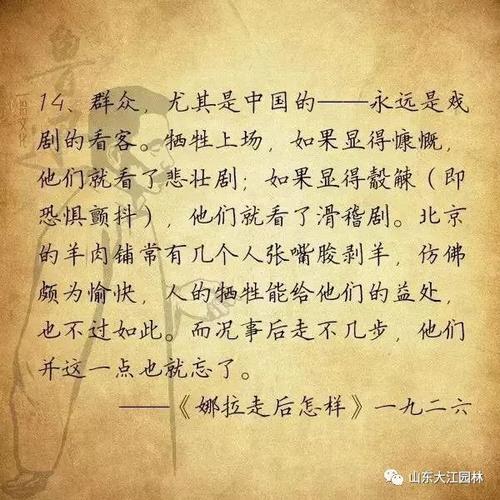 14、群众，尤其是中国的——永远是戏
剧的看客。牺牲上场，如果显得慷慨，
他们就看了悲壮剧；如果显得觳觫（即
恐惧颤抖），他们就看了滑稽剧。北京
的羊肉铺常有几个人张嘴胶剥羊，仿佛
颇为愉快，人的牺牲能给他们的益处，
也不过如此。而况事后走不几步，他们
并这一点也就忘了。
——《娜拉走后怎样》一九二六
山东大江园林